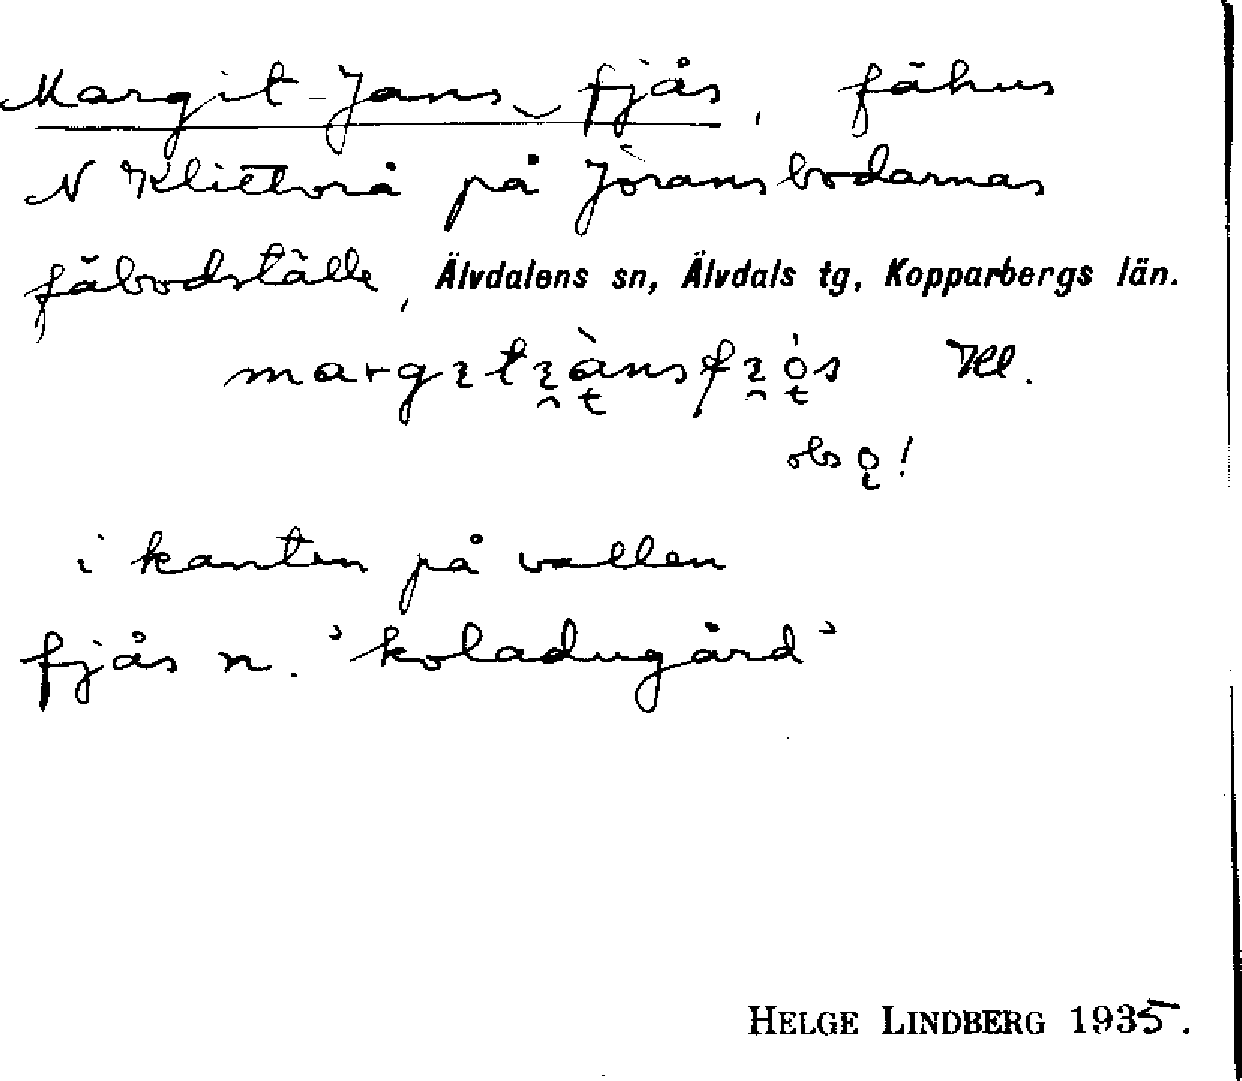 Margit-Jans fjås, fähus
N Klitterå på Jöransbodarnas
fäbodställe, Älvdalens sn, Älvdals tg, Kopparbergs län.
Kll.
obs o̧!
i kanten på vallen
fjås n. 'koladugård'
HELGE LINDBERG 1935.